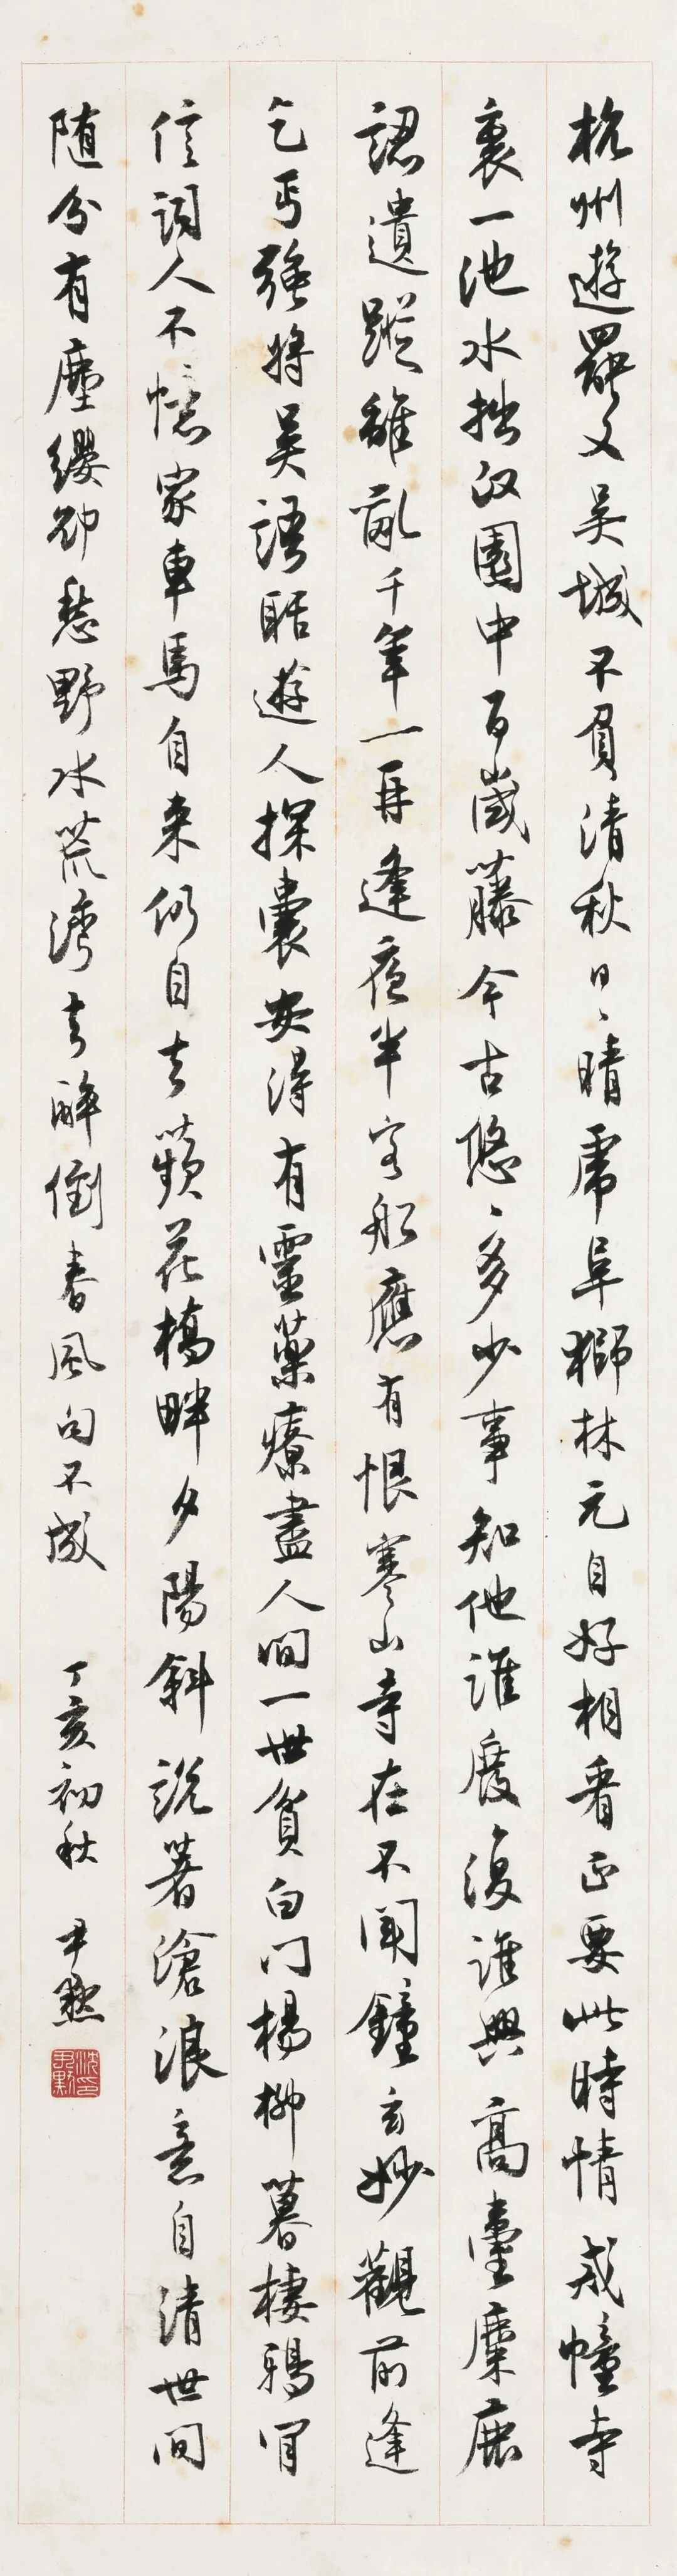 杭州遊罷又吳城不負清秋日〻晴虎阜獅林元自好相看正要此時情戒幢寺
裏一池水拙政園中百歲藤今古悠〻多少事知他誰廢復誰興高臺麋鹿
認遺蹤離亂千年一再逢夜半客船應有恨寒山寺在不聞鐘玄妙觀前逢
乞丐強將吳語聒遊人探囊安得有靈藥療盡人間一世貧白門楊柳暮棲鴉
信詞人不憶家車馬自來仍自去蘋花橋畔夕陽斜說著滄浪意自清世間
隨分有塵纓卻愁野水荒灣去醉倒春風句不成 丁亥初秋 尹默
沈尹默印